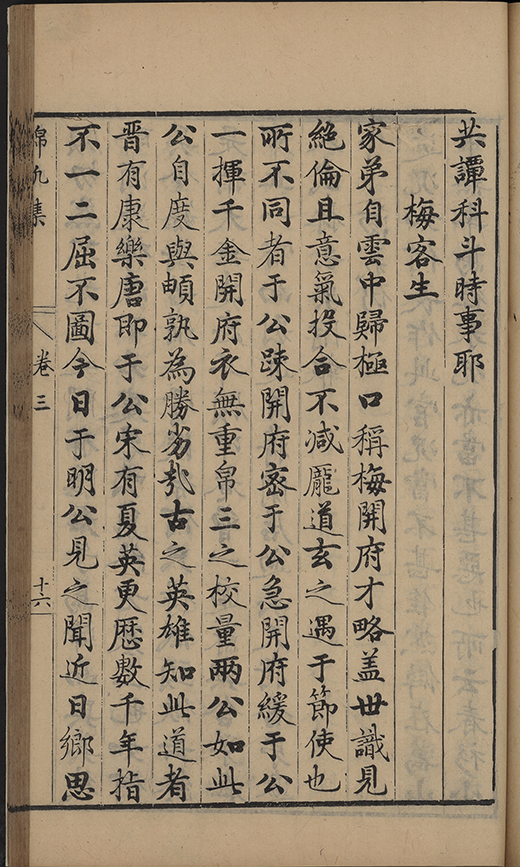 共譚科斗時事耶
梅客生
家弟自雲中歸極口稱梅開府才略盖世識見
絶倫且意氣投合不减龐道玄之遇于節使也
所不同者于公踈開府密于公急開府緩于公
一揮千金開府衣無重帛三之校量兩公如此
公自度與頔孰為勝劣㢤古之英雄知此道者
晋有康樂唐即于公宋有夏英更歴數千年指
不一二屈不圖今日于明公見之聞近日鄉思
錦㠶集
卷三
十六